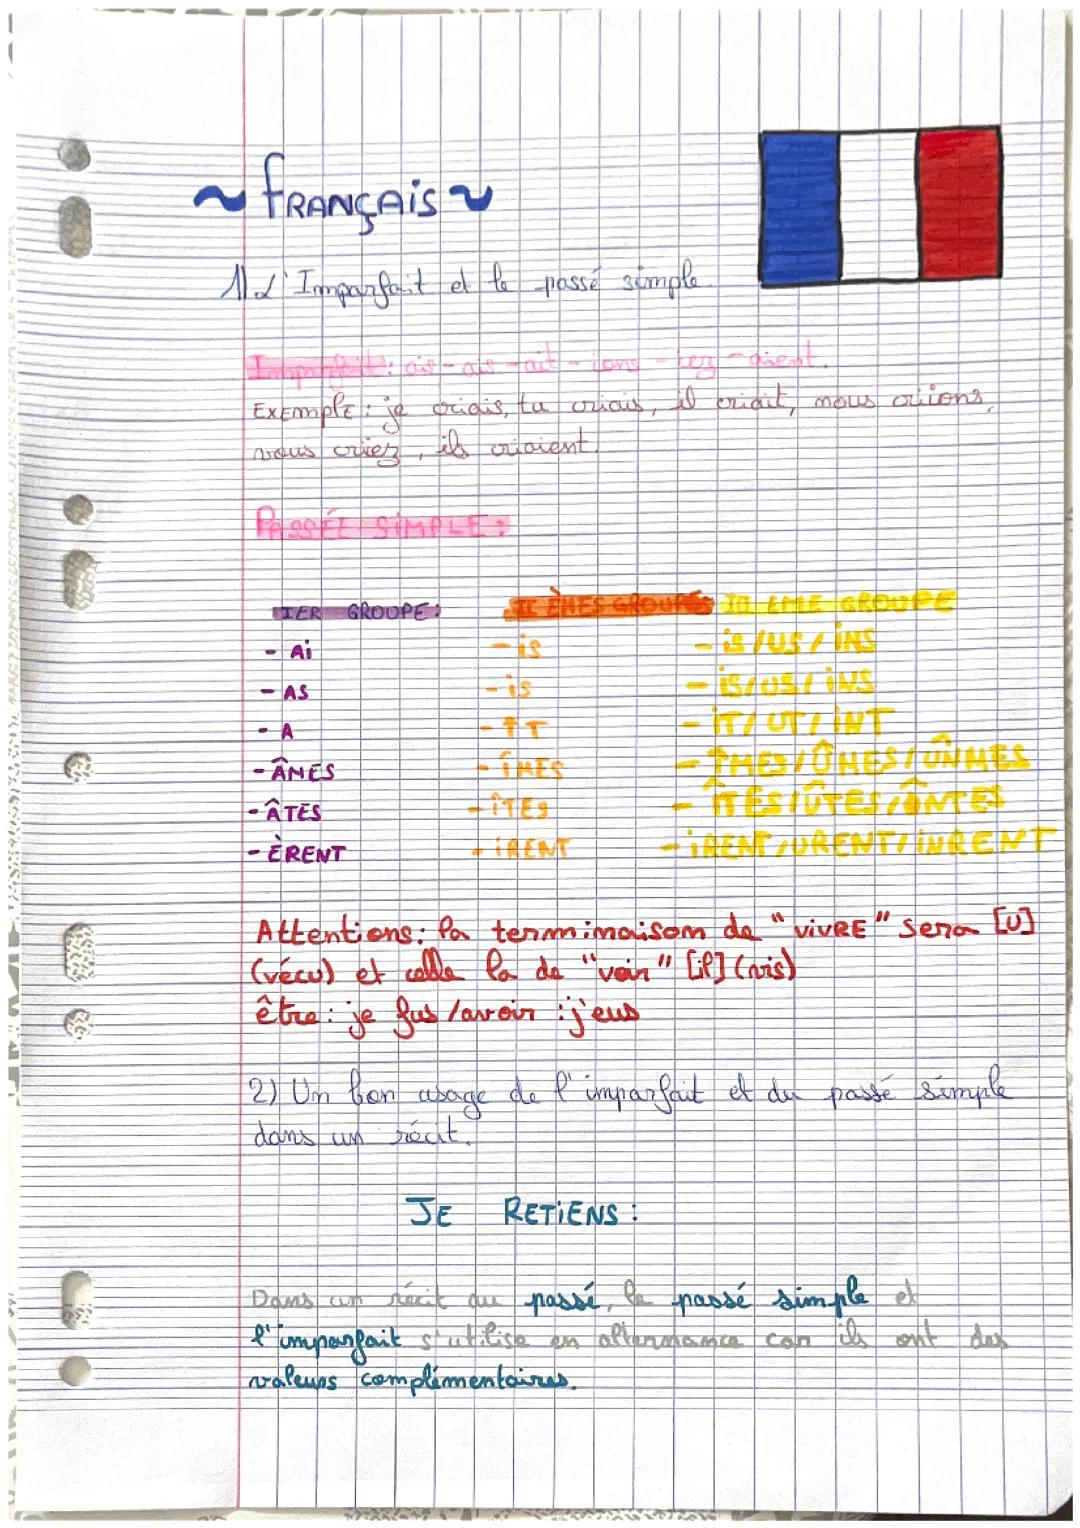 ~ FRANÇAiS ~
1) L'Imparfait et le passé simple.
Imparfait : ais - ais - ait - ions - iez - aient.
EXEmplE : je criais, tu criais, il criait, nous criions,
vous criez, ils criaient.
PASSÉE SiMPLE :
IER GROUPE : II ÈMES GROUPES III EME GROUPE
- Ai - is - iS / US / iNS
- AS - is - iS / US / iNS
- A - îT - iT / UT / iNT
- ÂMES - îMES - ÎMES / ÛMES / ÛNMES
- ÂTES - îTES - ÎTES / ÛTES / ÎNTES
- ÈRENT - iRENT - iRENT / URENT / iNRENT
Attentions : la terminaison de "ViVRE" sera [U]
(vécu) et celle la de "voir" [il] (vis)
être : je fus / avoir : j'eus
2) Un bon usage de l'imparfait et du passé simple
dans un récit.
JE RETiENS :
Dans un récit au passé, le passé simple et
l'imparfait s'utilise en alternance car ils ont des
valeurs complémentaires.